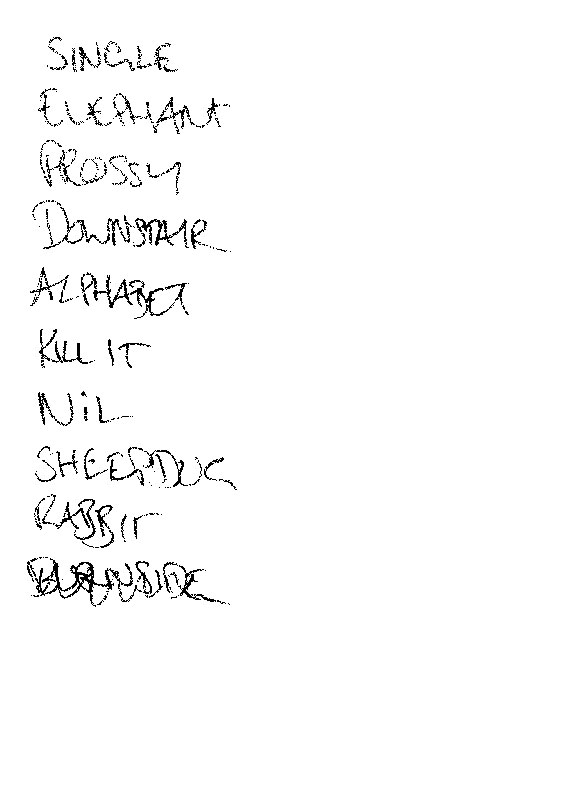 SINGLE
ELEPHANT
PROSSY
DOWNSTAIR
ALPHABET
KILL IT
NiL
SHEEPDUG
RABBIT
BURNSIDE